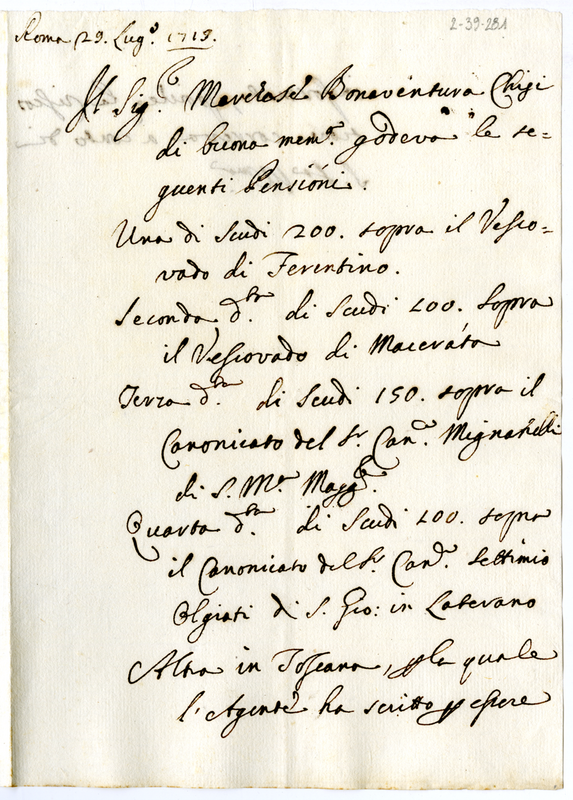 2-39-281
Roma 29. Lug.º 1719.
Il Sig.r Marchese Bonaventura Chigi
di buona mem.ª godeva le se=
guenti Pensioni.
Una di Scudi 200. sopra il Vesco=
vado di Ferentino.
Seconda d.ta di Scudi 100. sopra
il Vescovado di Macerata
Terza d.ta di Scudi 150. sopra il
Canonicato del S.r Can.º Mignanelli
di S. M.ª Magg.re
Quarta d.ta di Scudi 100. sopra
il Canonicato del S.r Can.º Settimio
Olgiati di S. Gio: in Laterano
Altra in Toscana, p la quale
l'Agente ha scritto p essere